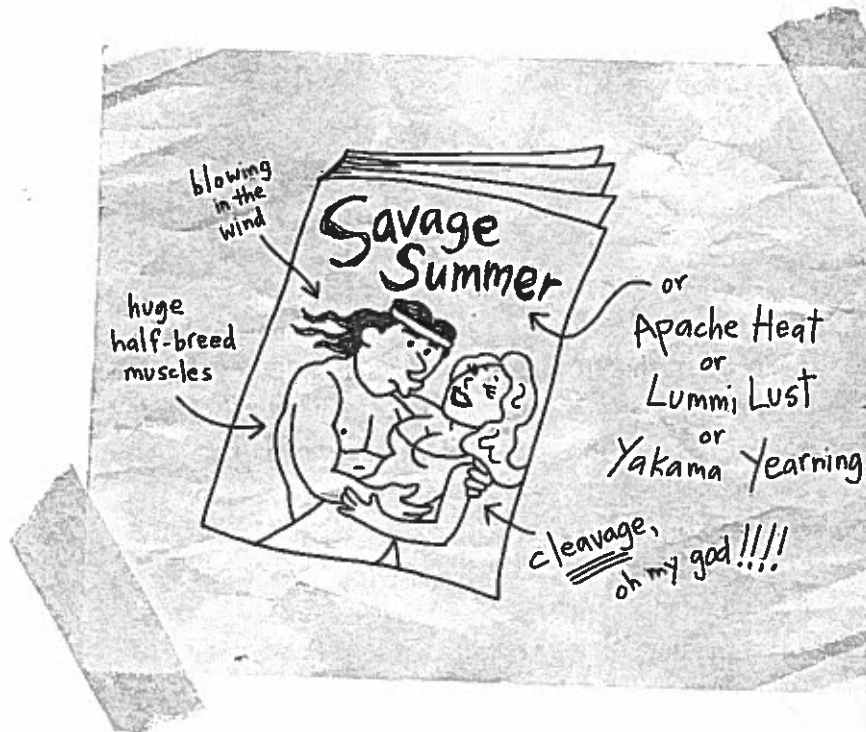 blowing
in the
wind
Savage
Summer
huge
half-breed
muscles
or
Apache Heat
or
Lummi Lust
or
Yakama Yearning
cleavage,
oh my god!!!!